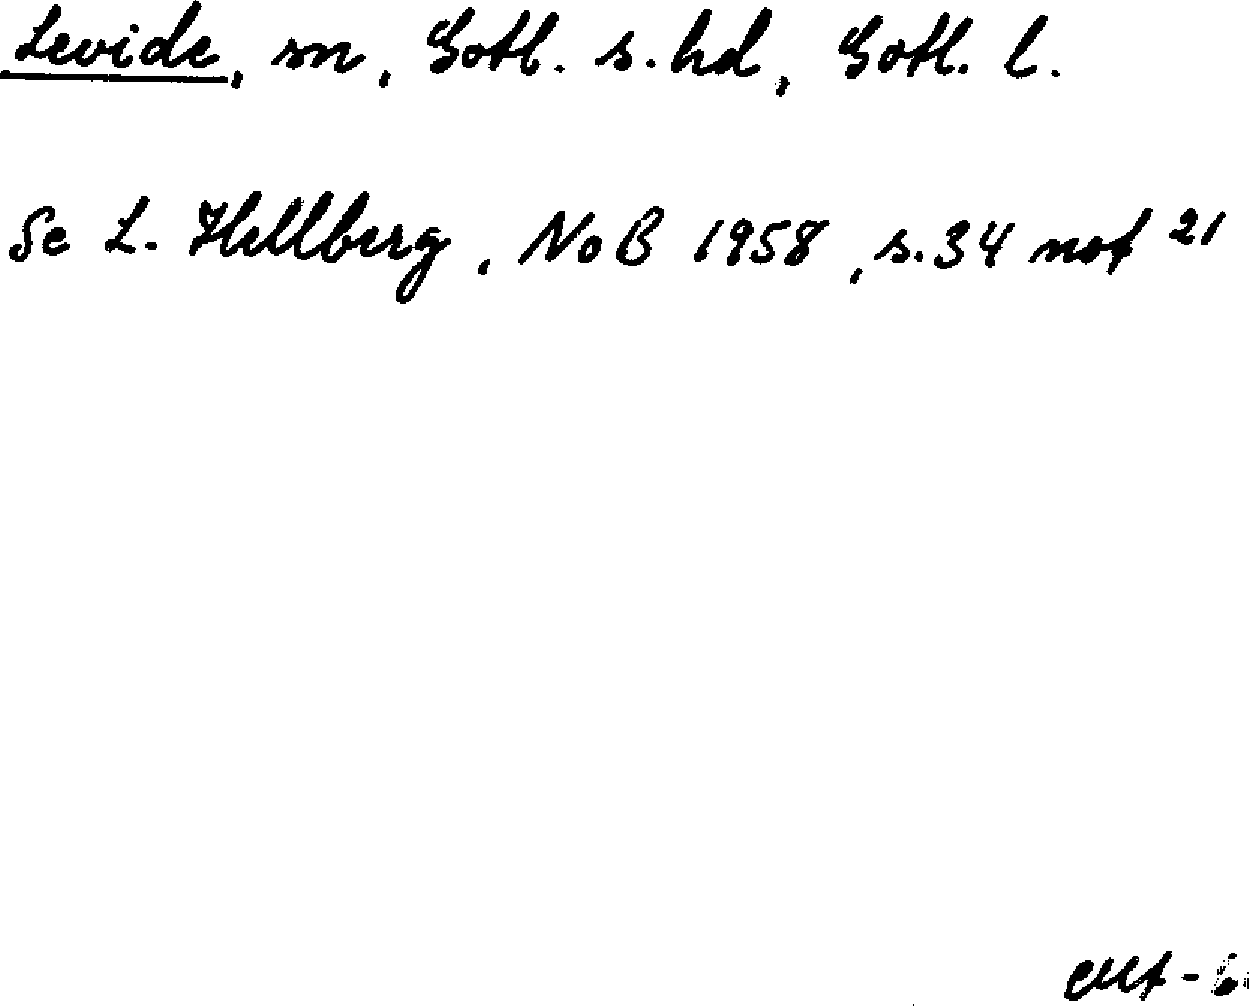 Levide, sn, Gotl. s. hd, Gotl. l.
Se L. Hellberg, NoB 1958, s. 34 not 21